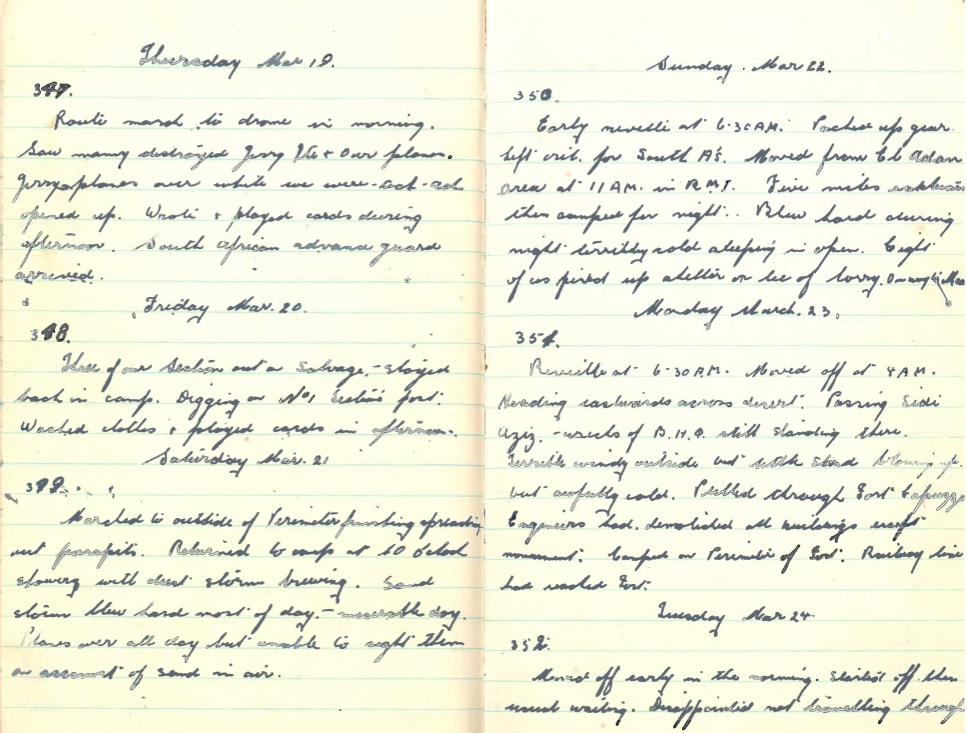 Thursday Mar 19.
347.
Route march to drome in morning.
Saw many destroyed Jerry Ite & Our planes.
Jerry planes over while we were - ack-ack
opened up. Wrote & played cards during
afternoon. South African advance guard
arrived.
Friday Mar. 20.
348.
Three of our Section out on Salvage, - stayed
back in camp. Digging on No 1 Section's post.
Washed clothes & played cards in afternoon.
Saturday Mar. 21
349.
Marched to outside of Perimeter finishing spreading
out parapits. Returned to camp at 10 oclock
showery with dust storm brewing. Sand
storm blew hard most of day. - miserable day.
Planes over all day but unable to sight them
on account of sand in air.
Sunday. Mar 22.
350.
Early reveille at 6-30 A.M. Packed up gear
left out. for South A's. Moved from El Adam
area at 11 AM. in R.M.T. Five miles eastwards
then camped for night. Blew hard during
night terribly cold sleeping in open. Eight
of us pired up shelter on lee of lorry.
Monday March. 23.
351.
Reveille at 6-30 P.M. Moved off at 9 AM.
Heading eastwards across desert. Passing Sidi
Aziz. - wrecks of B.H.Q. still standing there.
Terrible windy outside but little sand blowing up.
but awfully cold. Pulled through Fort Capuzzo
Engineers had. demolished all buildings except
monument. Camped on Perimiter of Fort. Railway line
had reached Fort.
Tuesday Mar 24.
352.
Moved off early in the morning. Started off then
usual waiting. Disappointed not travelling through